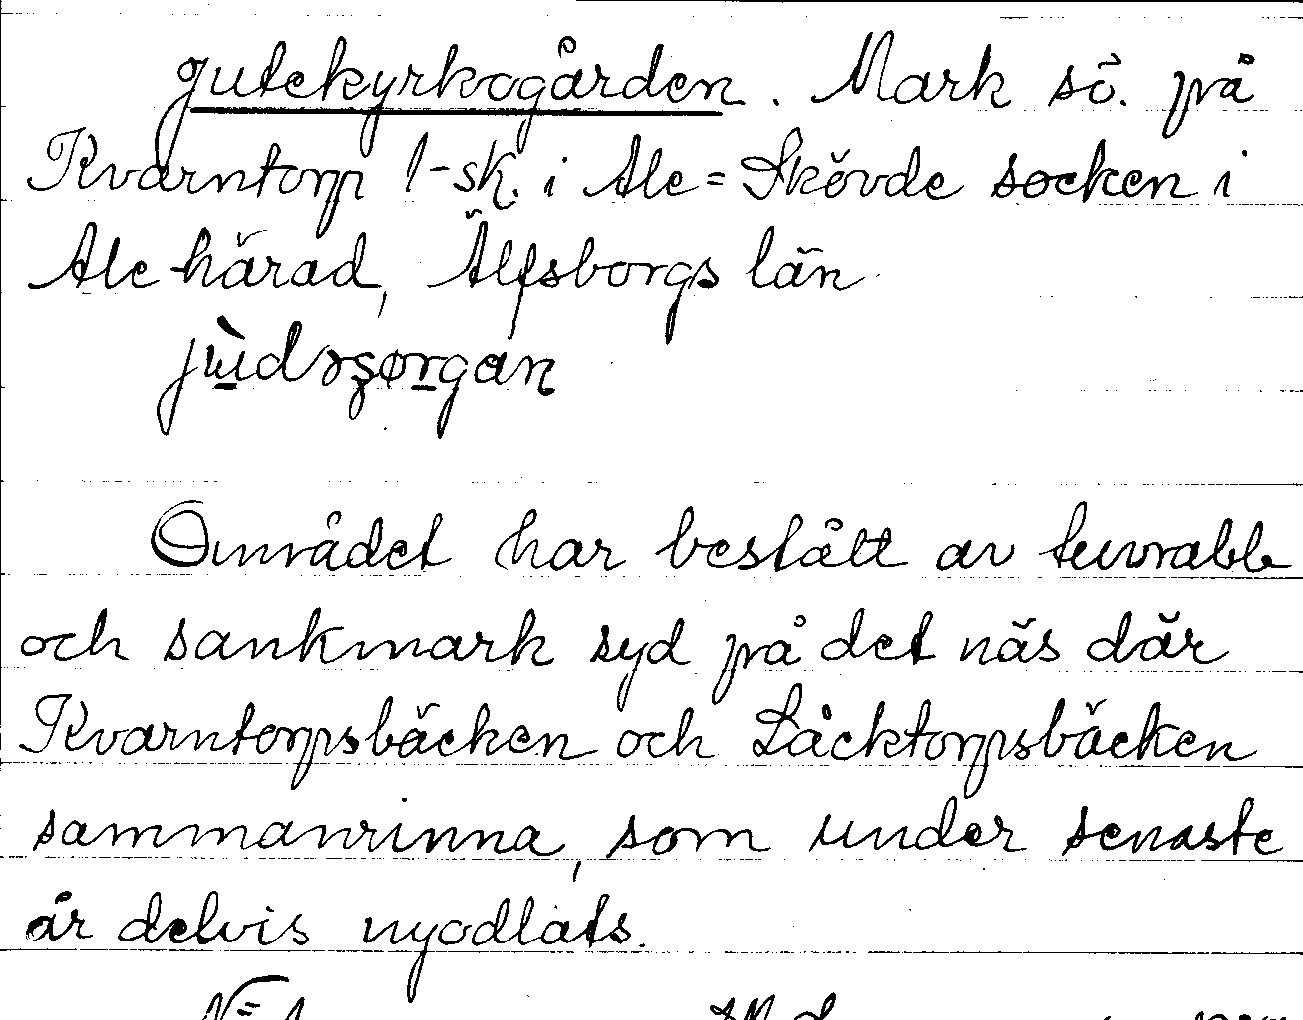 gutekyrkogården. Mark sö. på
Kvarntorp 1-sk. i Ale=Skövde socken i
Ale härad, Älfsborgs län
Området har bestått av tuvrabb
och sankmark syd på det näs där
Kvarntorpsbäcken och Låcktorpsbäcken
sammanrinna, som under senaste
år delvis nyodlats.